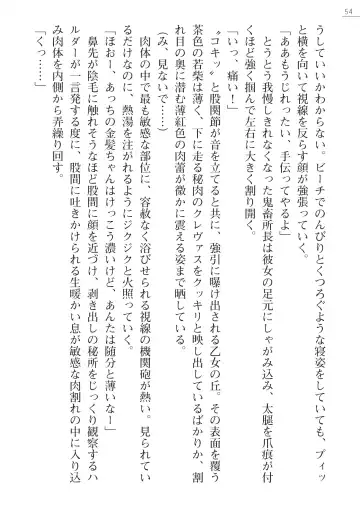 54
うしていいかわからない。ビーチでのんびりとくつろぐような寝姿をしていても、プイッ
と横を向いて視線を反らす顔が強張っていく。
「ああもうじれったい、手伝ってやるよ」
とうとう我慢しきれなくなった鬼畜所長は彼女の足元にしゃがみ込み、太腿を爪痕が付
くほど強く掴んで左右に大きく割り開く。
「いっ、痛い！」
“コキッ”と股関節が音を立てると共に、強引に曝け出される乙女の丘。その表面を覆う
茶色の若葉は薄く、下に走る秘肉のクレヴァスをクッキリと映し出しているばかりか、割
れ目の奥に潜む薄紅色の肉蕾が微かに震える姿まで晒している。
（み、見ないで……）
肉体の中で最も敏感な部位に、容赦なく浴びせられる視線の機関砲が熱い。見られてい
るだけなのに、熱湯を注がれるようにジクジクと火照っていく。
「ほおー、あっちの金髪ちゃんはけっこう濃いけど、あんたは随分と薄いなー」
鼻先が陰毛に触れそうなほど股間に顔を近づけ、剥き出しの秘所をじっくり観察するハ
ルダーが一言発する度に、股間に吐きかけられる生暖かい息が敏感な肉割れの中に入り込
み肉体を内側から弄繰り回す。
「くっ……」